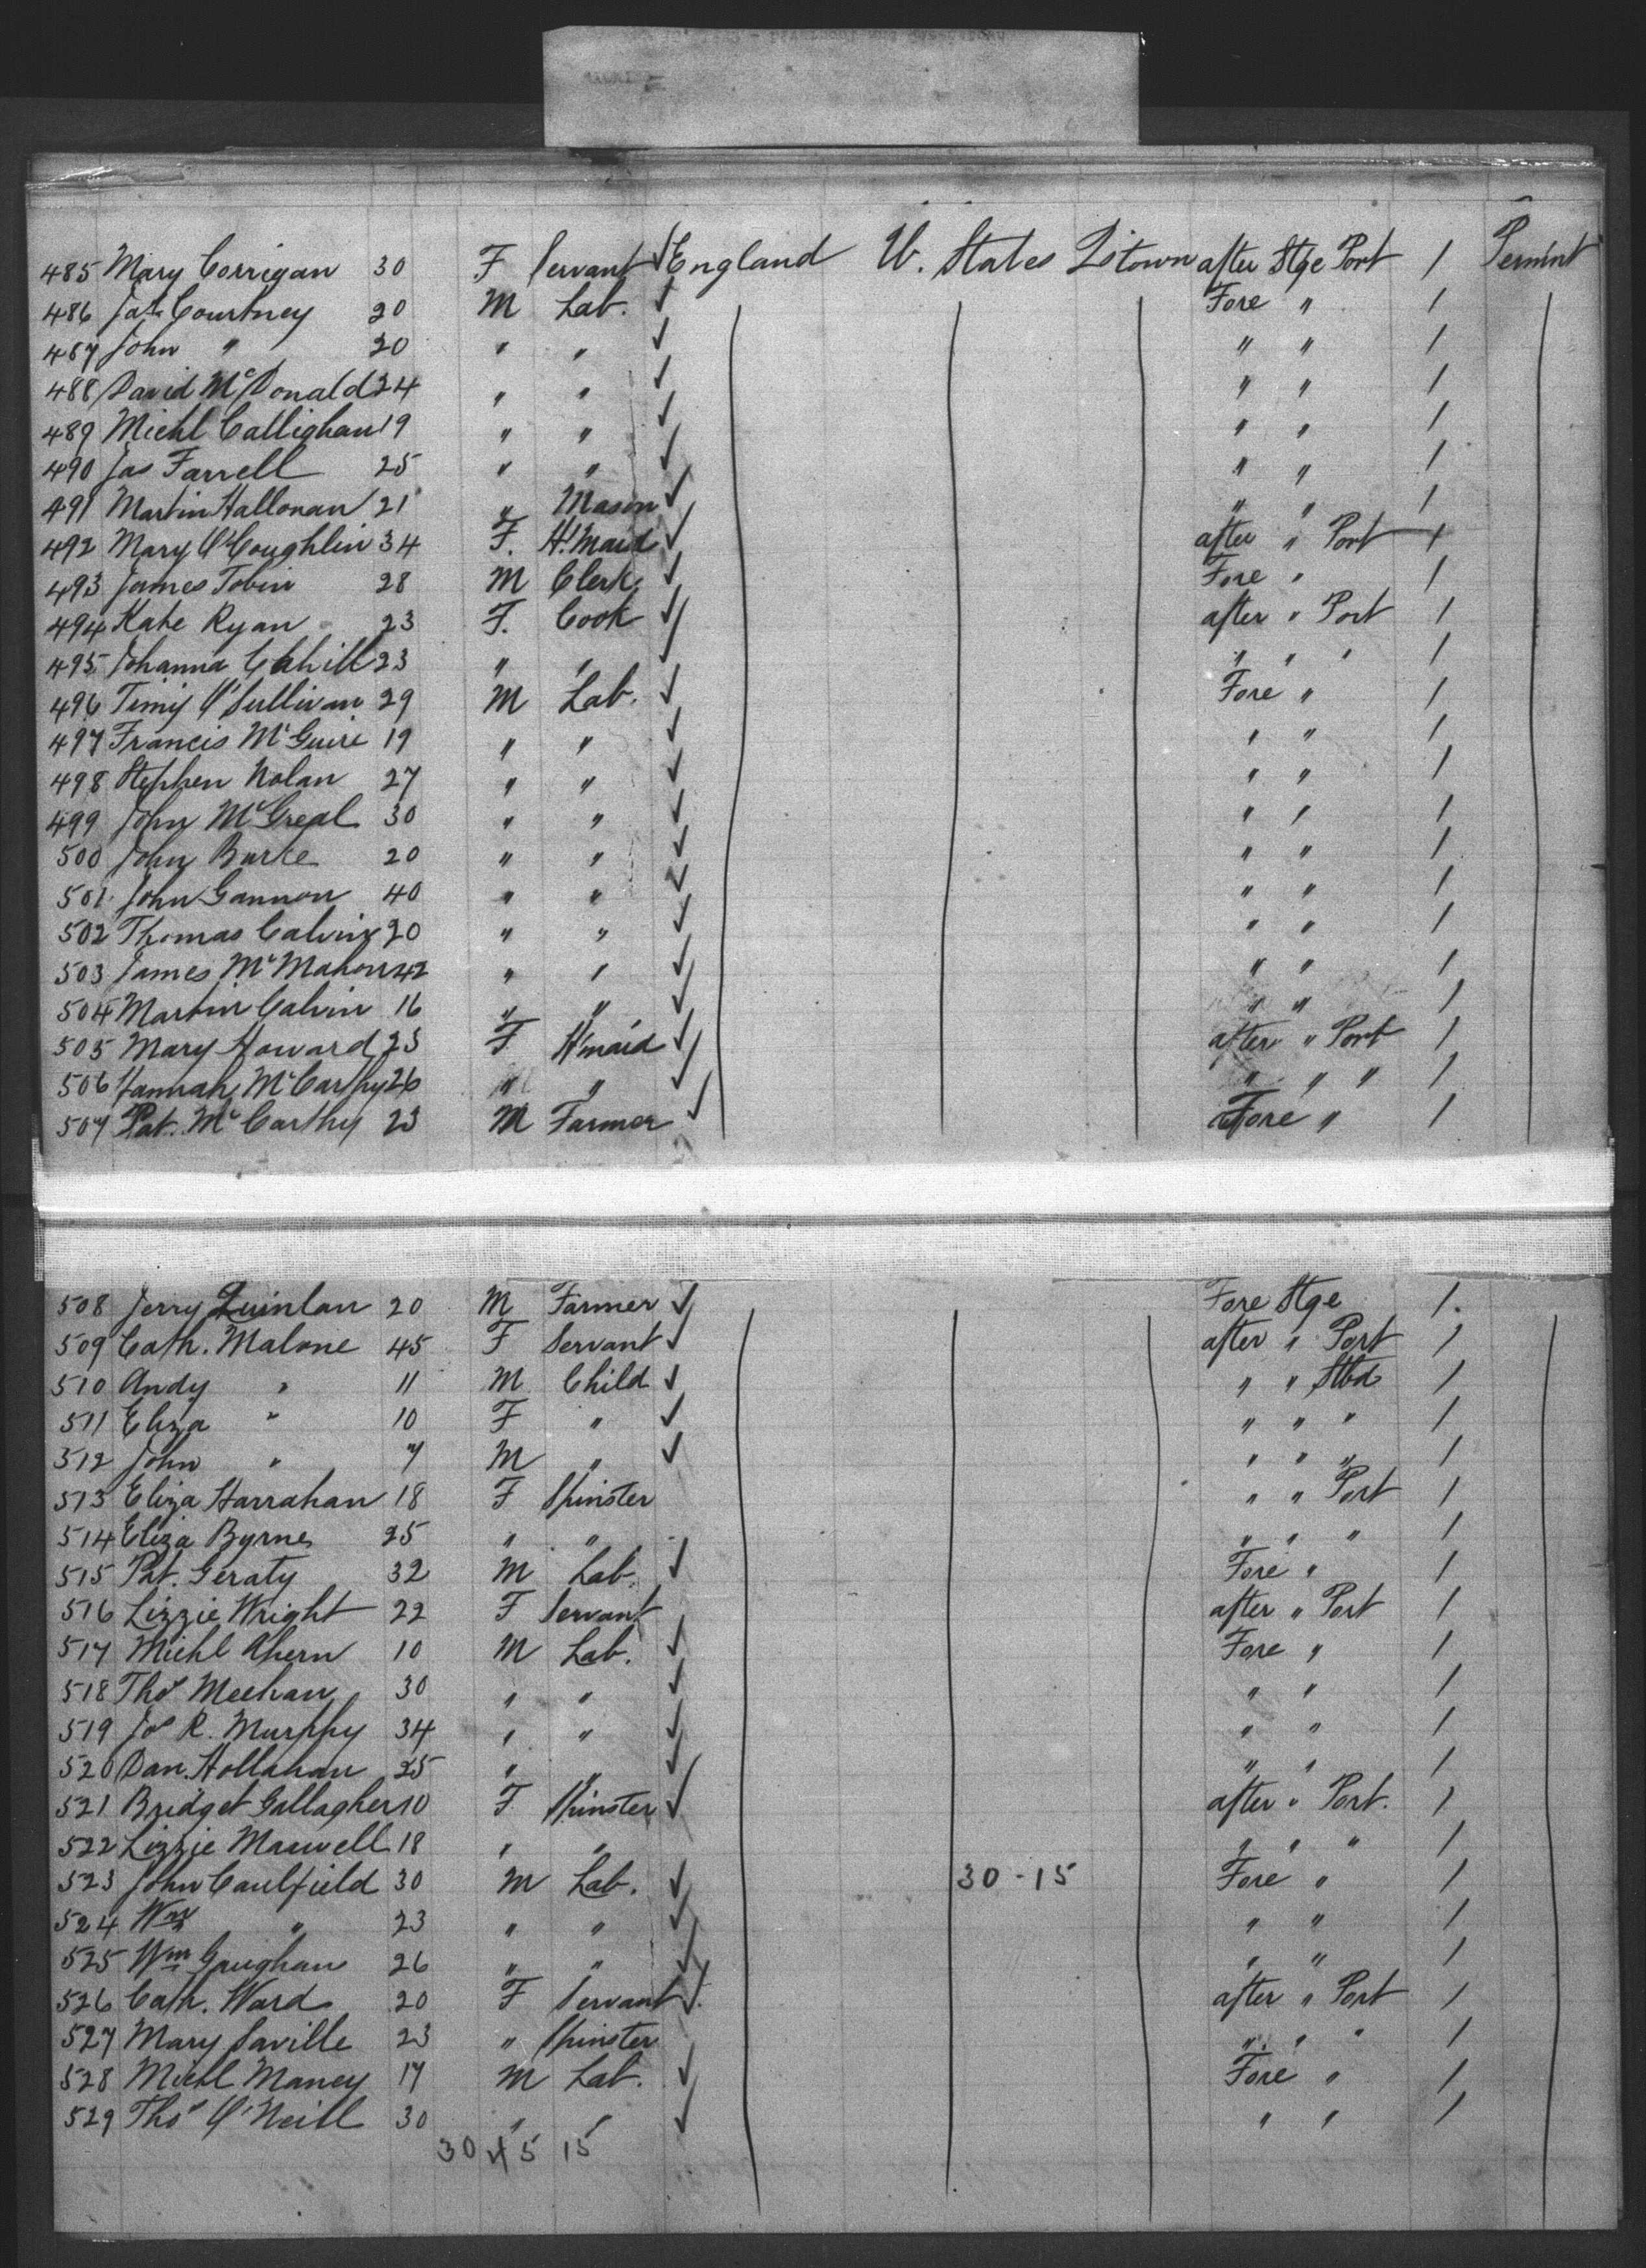 485 Mary Corrigan 30 F Servant ✓ England U. States Qstown after Stge Port / Permint
486 Jas Courtney 20 M Lab. ✓ Fore " /
487 John " 20 " " ✓ " " /
488 David McDonald 24 " " ✓ " " /
489 Michl Callighan 19 " " ✓ " " /
490 Jas Farrell 25 " " ✓ " " /
491 Martin Halloran 21 " Mason ✓ " " /
492 Mary O'Coughlin 34 F. H. Maid ✓ after " Port /
493 James Tobin 28 M Clerk ✓ Fore " /
494 Kate Ryan 23 F. Cook ✓ after " Port /
495 Johanna Cahill 23 " " ✓ " " " /
496 Timy O'Sullivan 29 M Lab. ✓ Fore " /
497 Francis McGuire 19 " " ✓ " " /
498 Stephen Nolan 27 " " ✓ " " /
499 John McGreal 30 " " ✓ " " /
500 John Burke 20 " " ✓ " " /
501 John Gannon 40 " " ✓ " " /
502 Thomas Calvin 20 " " ✓ " " /
503 James McMahon 42 " " ✓ " " /
504 Martin Calvin 16 " " ✓ " " /
505 Mary Howard 23 F H'maid ✓ after " Port /
506 Hannah McCarthy 26 " " ✓ " " " /
507 Pat. McCarthy 23 M Farmer ✓ Fore " /
508 Jerry Quinlan 20 M Farmer ✓ Fore Stge /
509 Cath. Malone 45 F Servant ✓ after " Port /
510 Andy " 11 M Child ✓ " " Stbd /
511 Eliza " 10 F " ✓ " " " /
512 John " 7 M " ✓ " " " /
513 Eliza Harrahan 18 F Spinster " " Port /
514 Eliza Byrne 25 " " " " " /
515 Pat. Geraty 32 M Lab. ✓ Fore " /
516 Lizzie Wright 22 F Servant after " Port /
517 Michl Ahern 10 M Lab. ✓ Fore " /
518 Thos Meehan 30 " " ✓ " " /
519 Jos R. Murphy 34 " " ✓ " " /
520 Dan. Hollahan 25 " " ✓ " " /
521 Bridget Gallagher 10 F Spinster ✓ after " Port. /
522 Lizzie Maxwell 18 " " " " " /
523 John Caulfield 30 M Lab. ✓ 30-15 Fore " /
524 Wm " 23 " " ✓ " " /
525 Wm Gaughan 26 " " ✓ " " /
526 Cath. Ward 20 F Servant ✓ after " Port /
527 Mary Saville 23 " Spinster " " " /
528 Michl Maney 17 M Lab. ✓ Fore " /
529 Thos O'Neill 30 " " ✓ " " /
30 45 15